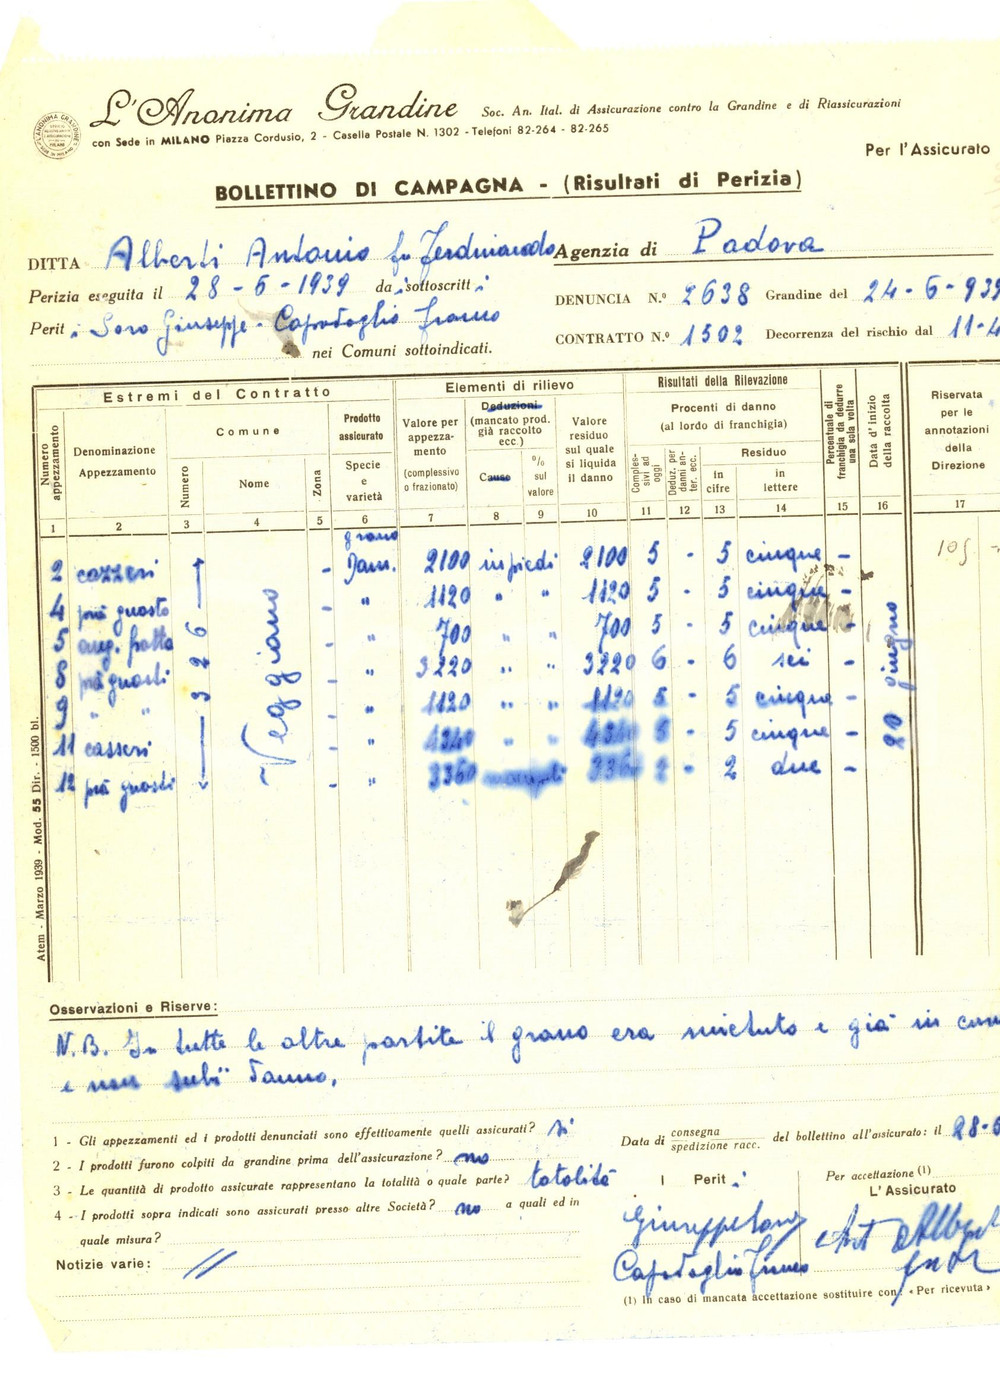 L'Anonima Grandine Soc. An. Ital. di Assicurazione contro la Grandine e di Riassicurazioni
con Sede in MILANO Piazza Cordusio, 2 - Casella Postale N. 1302 - Telefoni 82-264 - 82-265
Per l'Assicurato
BOLLETTINO DI CAMPAGNA - (Risultati di Perizia)
DITTA Alberti Antonio fu Ferdinando Agenzia di Padova
Perizia eseguita il 28-6-1939 da i sottoscritti
DENUNCIA N.º 2638 Grandine del 24-6-939
Periti Soro Giuseppe - Capodoglio Franco
CONTRATTO N.º 1502 Decorrenza del rischio dal 11-4
nei Comuni sottoindicati.
Estremi del Contratto Elementi di rilievo Risultati della Rilevazione
Numero appezzamento
Denominazione Appezzamento
Comune
Numero
Nome
Zona
Prodotto assicurato
Specie e varietà
Valore per appezzamento
(complessivo o frazionato)
Deduzioni
(mancato prod. già raccolto ecc.)
Causa
% sul valore
Valore residuo sul quale si liquida il danno
Procenti di danno (al lordo di franchigia)
Complessivi ad oggi
Deduz. per danni anter. ecc.
Residuo
in cifre
in lettere
Percentuale di franchigia da dedurre una sola volta
Data d'inizio della raccolta
Riservata per le annotazioni della Direzione
1 2 3 4 5 6 7 8 9 10 11 12 13 14 15 16 17
grano
2 cazzeri - 2100 in piedi 2100 5 - 5 cinque - 105 -
4 prà guasto - " 1120 " " 1120 5 - 5 cinque -
5 - " 700 " " 700 5 - 5 cinque -
8 prà guasti - " 3220 " " 3220 6 - 6 sei -
9 " " - " 1120 " " 1120 5 - 5 cinque -
11 casseri - " 4340 " " 4340 5 - 5 cinque -
12 prà guasti - " 3360 3360 2 - 2 due -
326
Veggiano
20 giugno
Atem - Marzo 1939 - Mod. 55 Dir. - 1500 bl.
Osservazioni e Riserve:
N.B. In tutte le altre partite il grano era mietuto e già in
e non subì danno.
1 - Gli appezzamenti ed i prodotti denunciati sono effettivamente quelli assicurati? sì
2 - I prodotti furono colpiti da grandine prima dell'assicurazione? no
3 - Le quantità di prodotto assicurate rappresentano la totalità o quale parte? totalità
4 - I prodotti sopra indicati sono assicurati presso altre Società? no a quali ed in
quale misura?
Notizie varie: //
Data di consegna / spedizione racc. del bollettino all'assicurato: il 28-6
I Periti
Per accettazione (1)
L'Assicurato
Capodoglio Franco
(1) In caso di mancata accettazione sostituire con: «Per ricevuta»